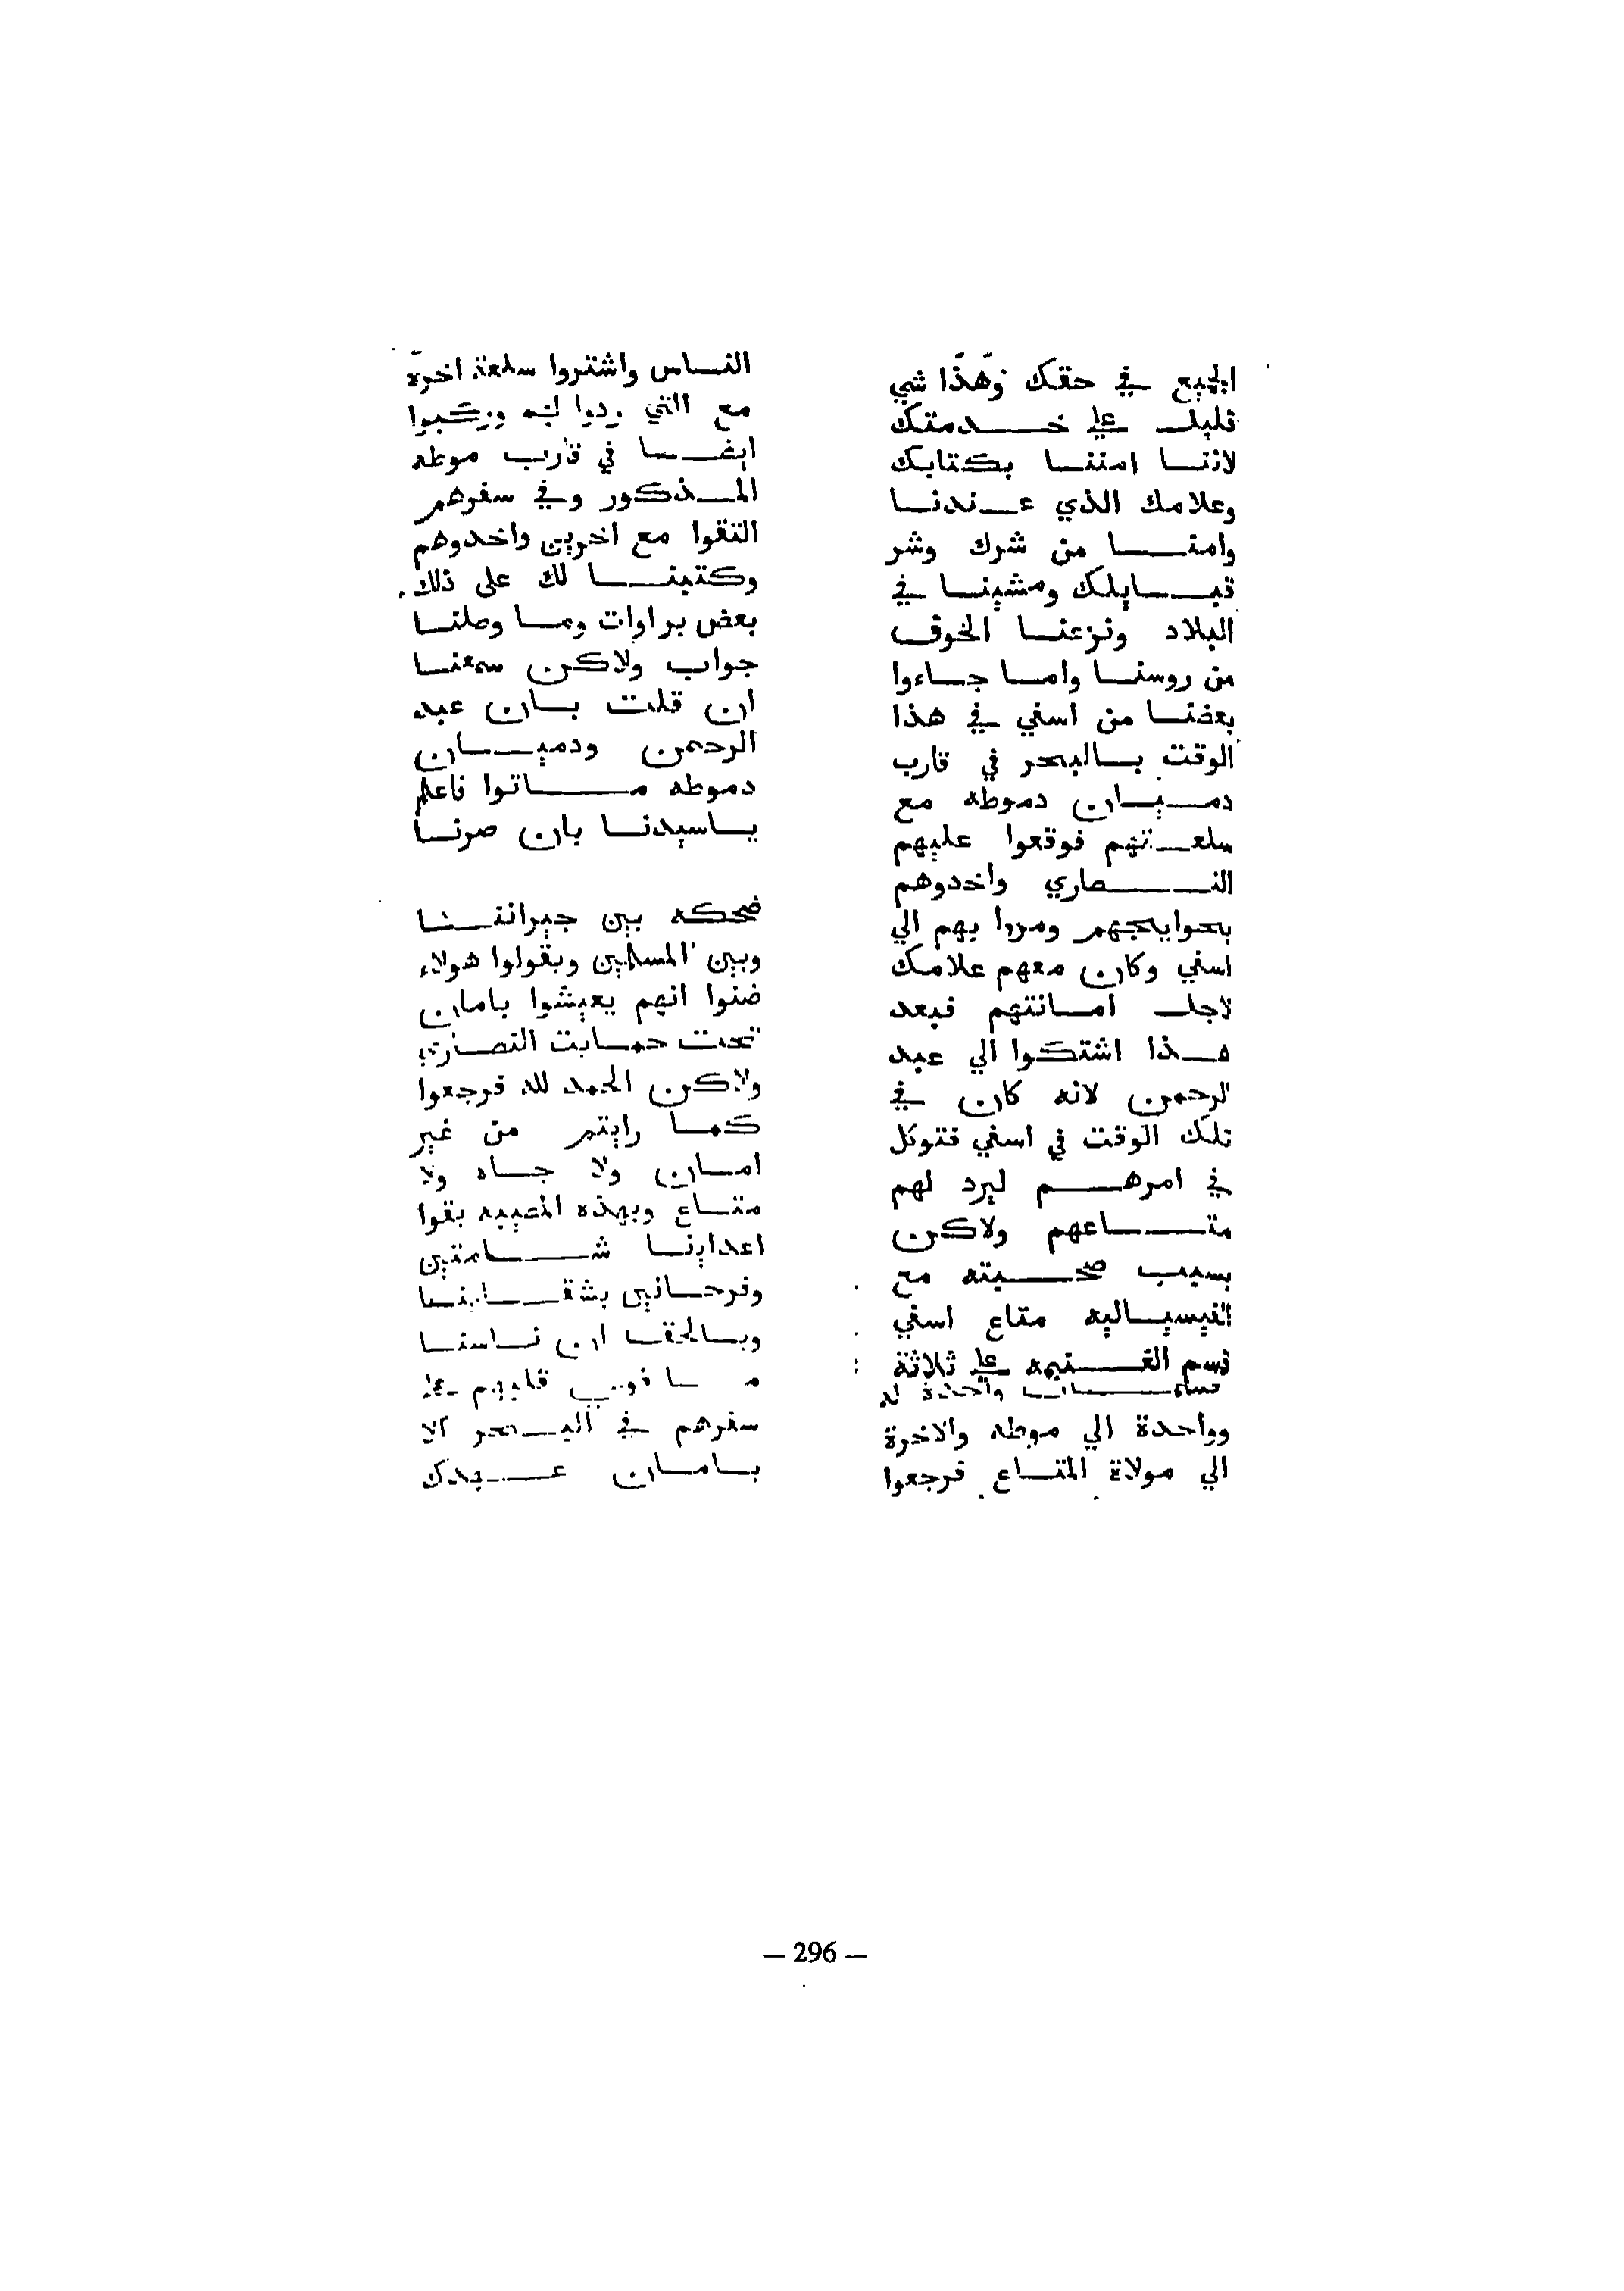 الجميع في حقك وهذا شي
قليل علي خدمتك
لاننا امننا بكتابك
وعلامك الذي عندنا
وامنا من شرك وشر
قبايلك ومشينا في
البلاد ونزعنا الخوف
من روسنا واما جاءوا
بعضنا من اسفي في هذا
الوقت بالبحر في قارب
دميان دموطه مع
سلعتهم فوقعوا عليهم
النصاري واخدوهم
بحوايجهم ومروا بهم الي
اسفي وكان معهم علامك
لاجل امانتهم فبعد
هذا اشتكوا الي عبد
الرحمن لانه كان في
تلك الوقت في اسفي فتوكل
في امرهم ليرد لهم
متاعهم ولاكن
بسبب صحبته مع
الفيسياليه متاع اسفي
قسم الغنيمه علي ثلاثة
واحدة له
وواحدة الي موطه والاخرة
الي مولاة المتاع فرجعوا
الناس واشتروا سلعة اخرة
مع التي ردوا لهم وركبوا
ايضا في قارب موطه
المذكور وفي سفرهم
التقوا مع اخرين واخدوهم
وكتبنا لك على ذلك
بعض براوات وما وصلنا
جواب ولاكن سمعنا
ان قلت بان عبد
الرحمن ودميان
دموطه ماتوا فاعلم
ياسيدنا بان صرنا
ضحكه بين جيراننا
وبين المسلمين وبقولوا هولاء
ضنوا انهم يعيشوا بامان
تحت حمايت النصاري
ولاكن الحمد لله فرجعوا
كما رايتم من غير
امان ولا جاه ولا
متاع وبهذه المصيبه بقوا
اعداينا شامتين
وفرحانين بشقاينا
وبالحق ان ناسنا
ما قلبهم على
سفرهم في البحر الا
بامان عبدك
— 296 —